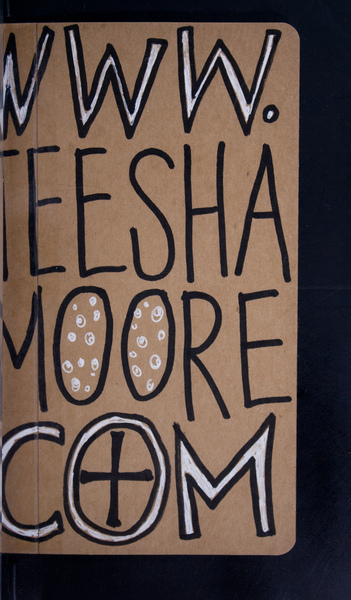 WWW.
TEESHA
MOORE
COM